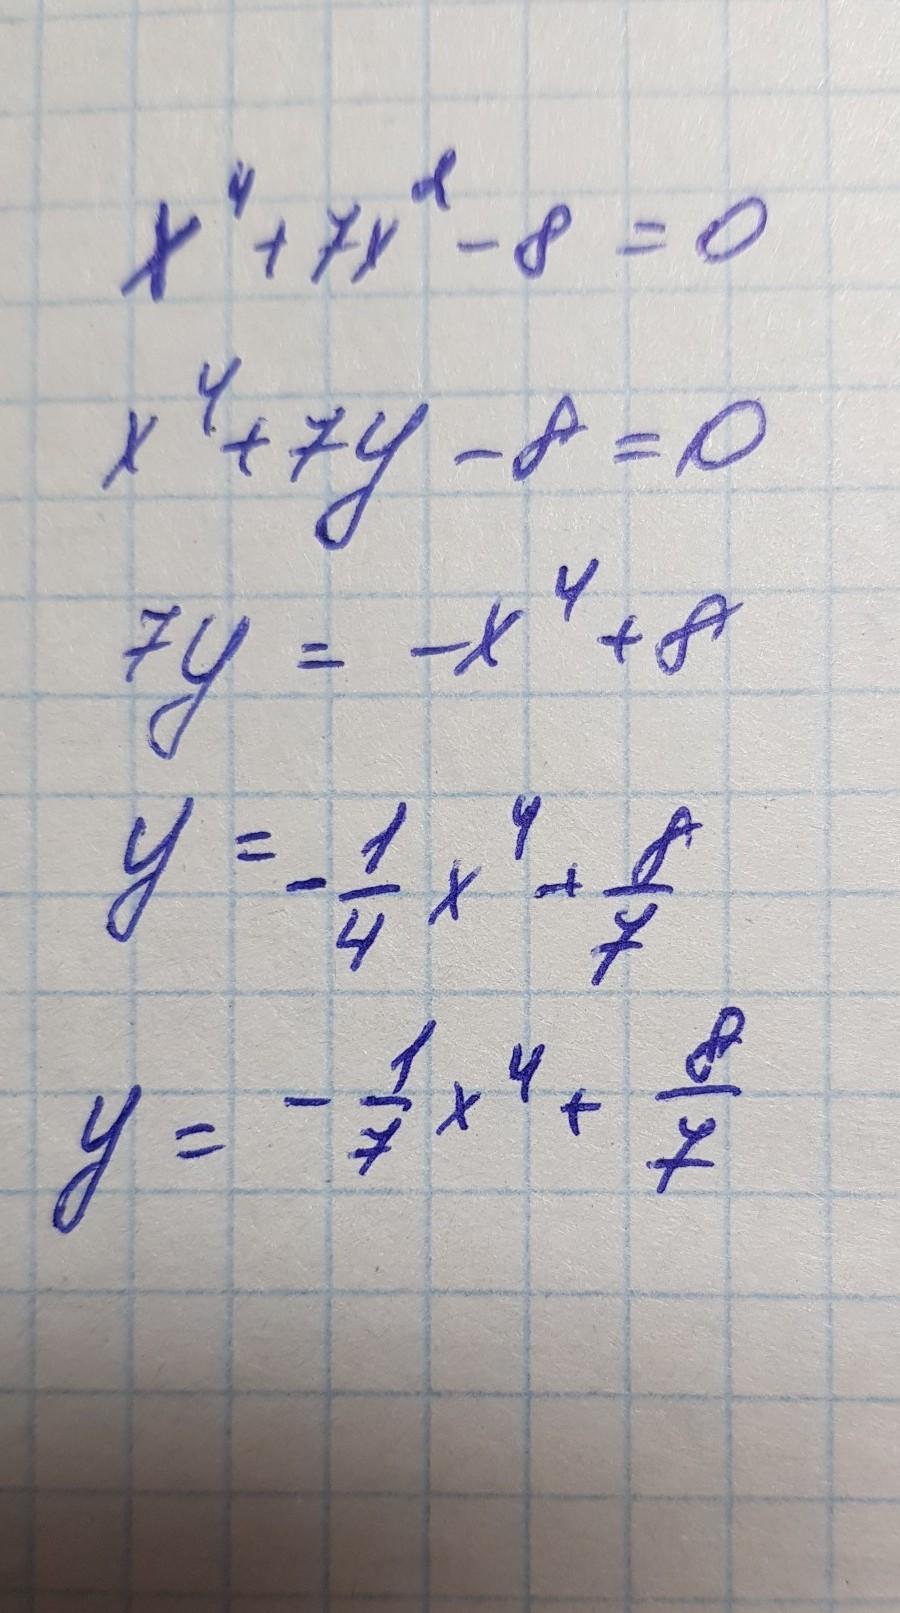 x⁴ + 7x² - 8 = 0
x⁴ + 7y - 8 = 0
7y = -x⁴ + 8
y = -1/4 x⁴ + 8/7
y = -1/7 x⁴ + 8/7